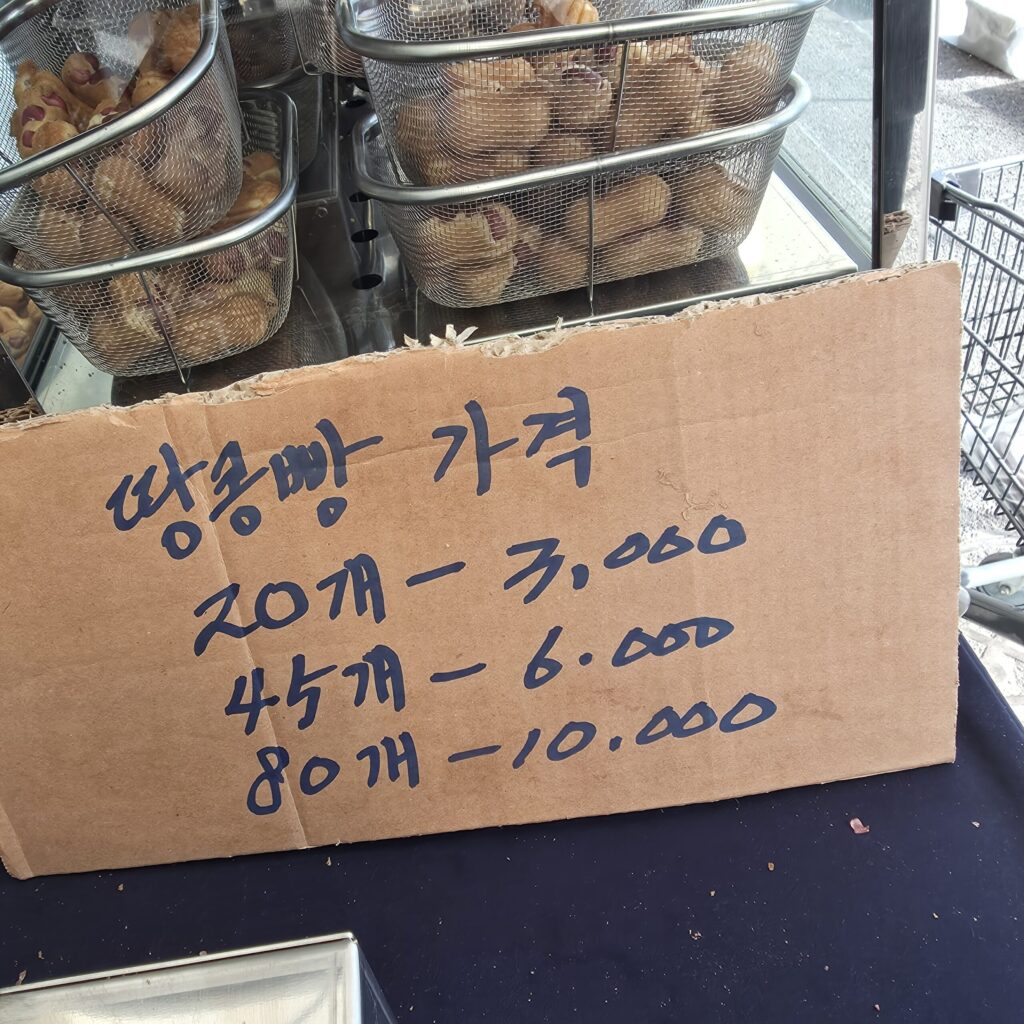 땅콩빵 가격
20개 - 3,000
45개 - 6.000
80개 - 10.000